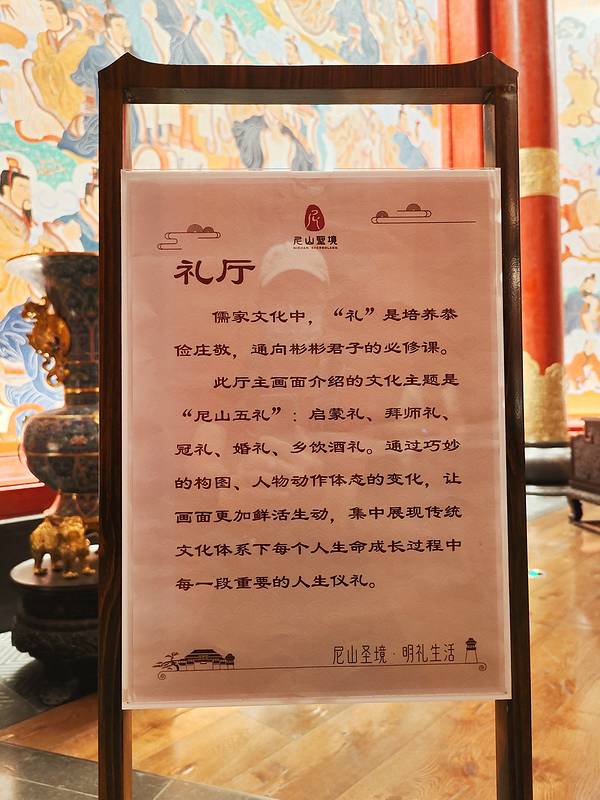 尼山聖境
NISHAN SHENGJING
礼厅
儒家文化中，“礼”是培养恭
俭庄敬，通向彬彬君子的必修课。
此厅主画面介绍的文化主题是
“尼山五礼”：启蒙礼、拜师礼、
冠礼、婚礼、乡饮酒礼。通过巧妙
的构图、人物动作体态的变化，让
画面更加鲜活生动，集中展现传统
文化体系下每个人生命成长过程中
每一段重要的人生仪礼。
尼山圣境·明礼生活